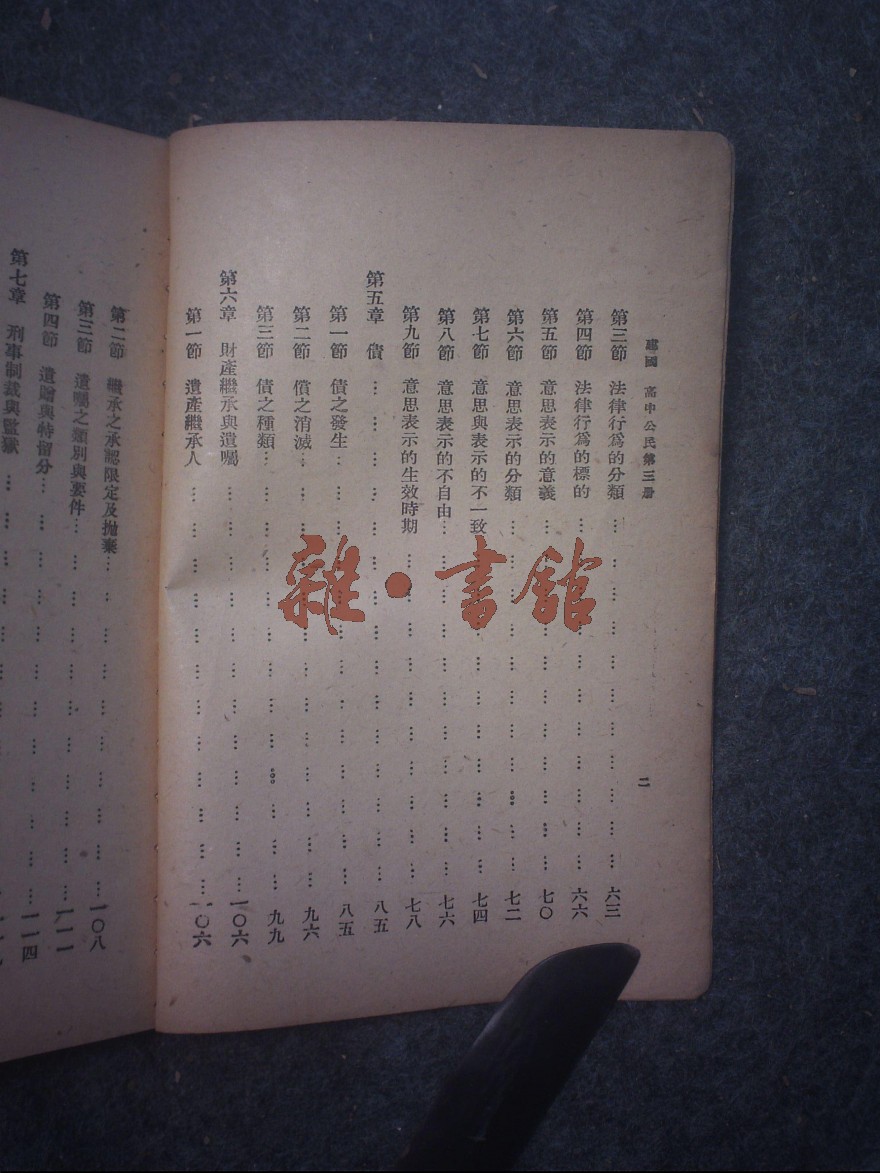 建國 高中公民第三册 二
第三節 法律行爲的分類 六三
第四節 法律行爲的標的 六六
第五節 意思表示的意義 七〇
第六節 意思表示的分類 七二
第七節 意思與表示的不一致 七四
第八節 意思表示的不自由 七六
第九節 意思表示的生效時期 七八
第五章 債 八五
第一節 債之發生 八五
第二節 償之消滅 九六
第三節 債之種類 九九
第六章 財產繼承與遺囑 一〇六
第一節 遺產繼承人 一〇六
第二節 繼承之承認限定及拋棄 一〇八
第三節 遺囑之類別與要件 一一一
第四節 遺贈與特留分 一一四
第七章 刑事制裁與監獄
雜·書館